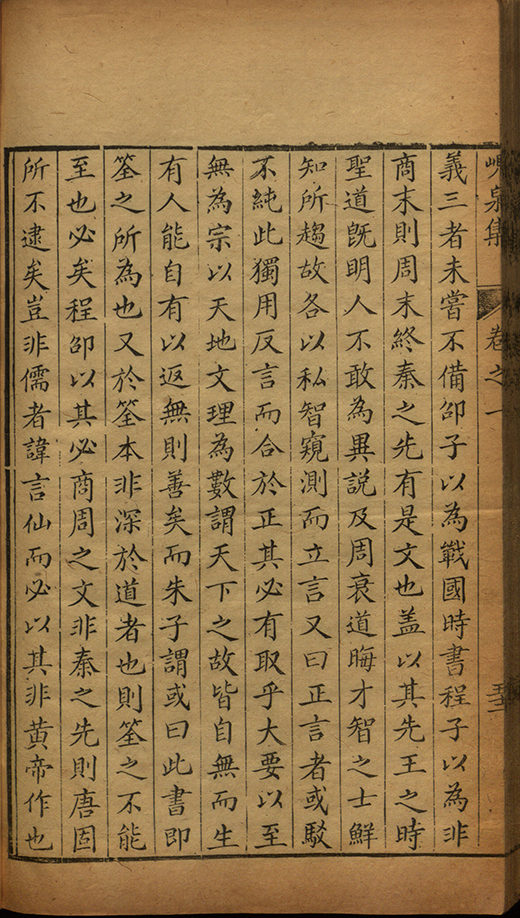 峴泉集 卷之一
義三者未嘗不備邵子以為戰國時書程子以為非
商末則周末終秦之先有是文也盖以其先王之時
聖道旣明人不敢為異說及周衰道晦才智之士鮮
知所趨故各以私智窺測而立言又曰正言者或駁
不純此獨用反言而合於正其必有取乎大要以至
無為宗以天地文理為數謂天下之故皆自無而生
有人能自有以返無則善矣而朱子謂或曰此書即
筌之所為也又於筌本非深於道者也則筌之不能
至也必矣程邵以其必商周之文非秦之先則唐固
所不逮矣豈非儒者諱言仙而必以其非黄帝作也